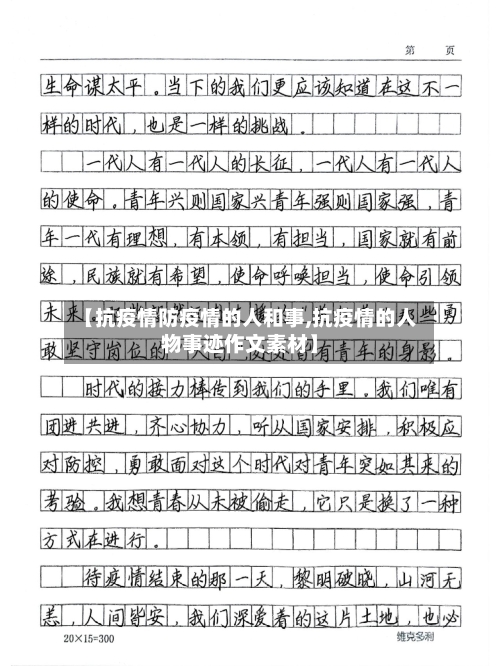 第 页
生命谋太平。当下的我们更应该知道在这不一
样的时代，也是一样的挑战。
一代人有一代人的长征，一代人有一代人
的使命。青年兴则国家兴青年强则国家强，青
年一代有理想，有本领，有担当，国家就有前
途，民族就有希望，使命呼唤担当，使命引领
未来。些勇
【抗疫情防疫情的人和事,抗疫情的人
敢坚守岗位的有青年的身影。
物事迹作文素材】
时代的接力棒传到我们的手里。我们唯有
团进共进，齐心协力，听从国家安排，积极应
对防控，勇敢面对这个时代对青年突如其来的
考验。我想青春从未被偷走，它只是换了一种
方式在进行。
待疫情结束的那一天，黎明破晓，山河无
恙，人间皆安，我们深爱着的这片土地，也必
20×15=300 维克多利